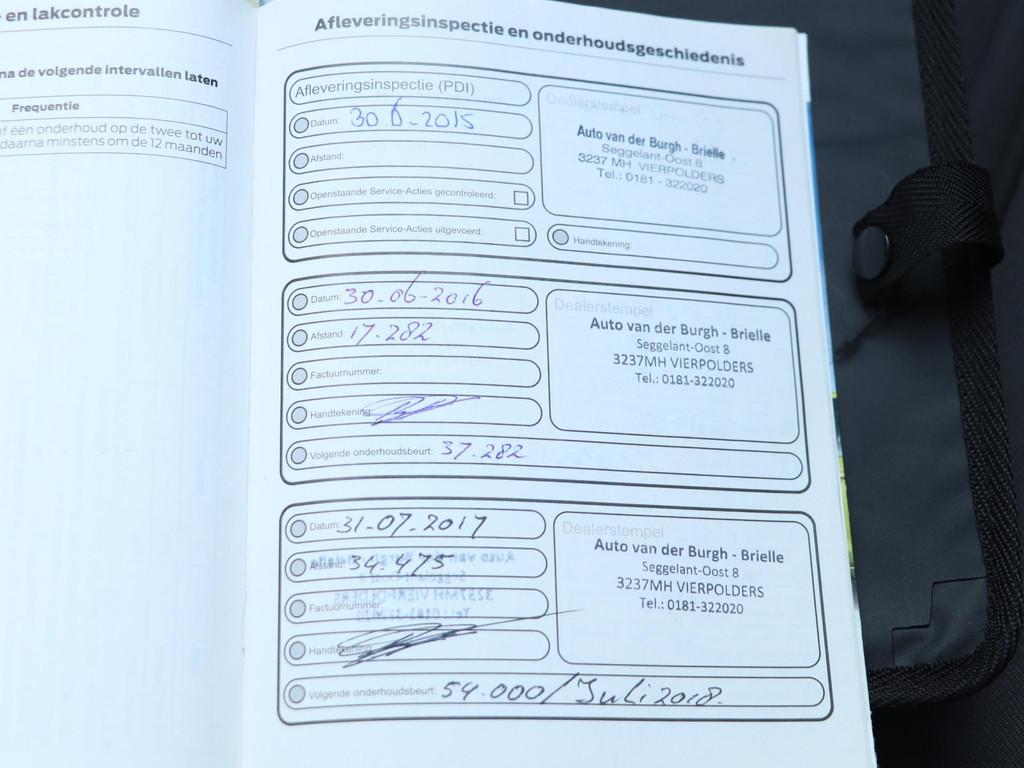 en lakcontrole
na de volgende intervallen laten
Frequentie
of één onderhoud op de twee tot uw
daarna minstens om de 12 maanden
Afleveringsinspectie en onderhoudsgeschiedenis
Afleveringsinspectie (PDI)
Datum: 30-6-2015
Afstand:
Openstaande Service-Acties gecontroleerd:
Openstaande Service-Acties uitgevoerd:
Dealerstempel
Auto van der Burgh - Brielle
Seggelant-Oost 8
3237 MH VIERPOLDERS
Tel.: 0181 - 322020
Handtekening:
Datum: 30-06-2016
Afstand: 17.282
Factuurnummer:
Handtekening:
Volgende onderhoudsbeurt: 37.282
Dealerstempel
Auto van der Burgh - Brielle
Seggelant-Oost 8
3237MH VIERPOLDERS
Tel.: 0181-322020
Datum: 31-07-2017
Afstand: 34.475
Factuurnummer:
Handtekening:
Volgende onderhoudsbeurt: 54.000/Juli 2018.
Dealerstempel
Auto van der Burgh - Brielle
Seggelant-Oost 8
3237MH VIERPOLDERS
Tel.: 0181-322020